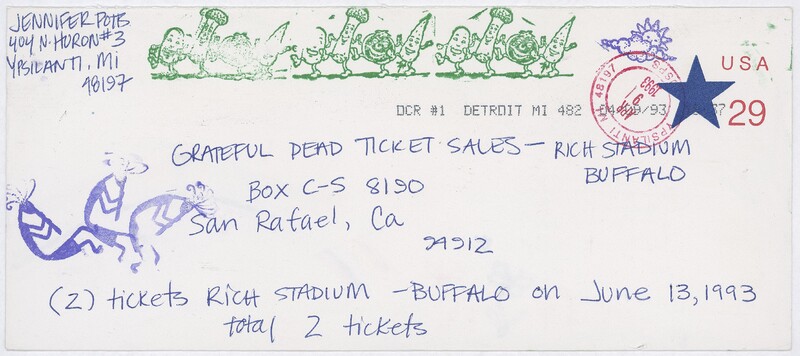 JENNIFER POTB
404 N. HURON #3
YPSILANTI, MI
48197
USA
29
DCR #1 DETROIT MI 482 04/09/93
YPSILANTI MI 48197
1993
GRATEFUL DEAD TICKET SALES — RICH STADIUM
BUFFALO
BOX C-S 8190
San Rafael, Ca
94912
(2) tickets RICH STADIUM — BUFFALO on June 13, 1993
total 2 tickets